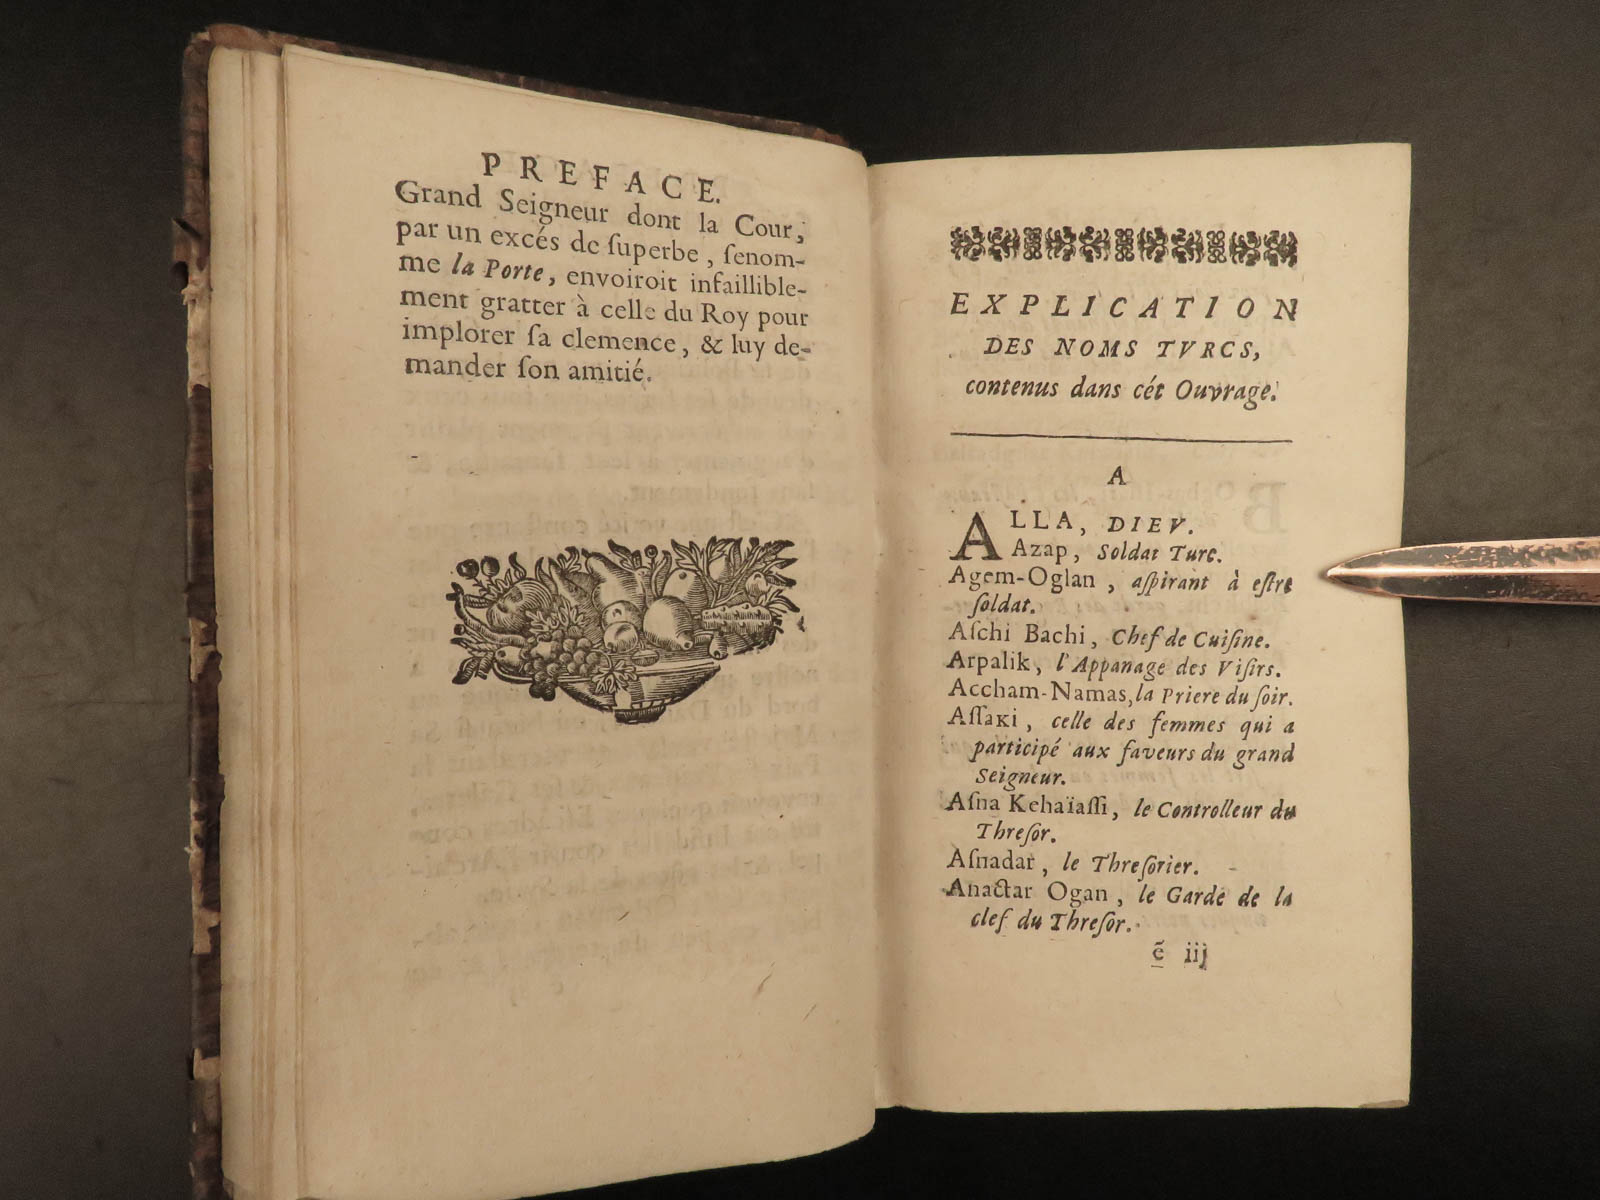 PREFACE.
Grand Seigneur dont la Cour,
par un excés de ſuperbe, ſenom-
me la Porte, envoiroit infaillible-
ment gratter à celle du Roy pour
implorer ſa clemence, & luy de-
mander ſon amitié.
EXPLICATION
DES NOMS TVRCS,
contenus dans cét Ouvrage.
A
ALLA, DIEV.
Azap, Soldat Turc.
Agem-Oglan, aſpirant à eſtre
ſoldat.
Aſchi Bachi, Chef de Cuiſine.
Arpalik, l'Appanage des Viſirs.
Accham-Namas, la Priere du ſoir.
AſſaKi, celle des femmes qui a
participé aux faveurs du grand
Seigneur.
Aſna Kehaïaſſi, le Controlleur du
Threſor.
Aſnadar, le Threſorier.
Anactar Ogan, le Garde de la
clef du Threſor.
ẽ iij